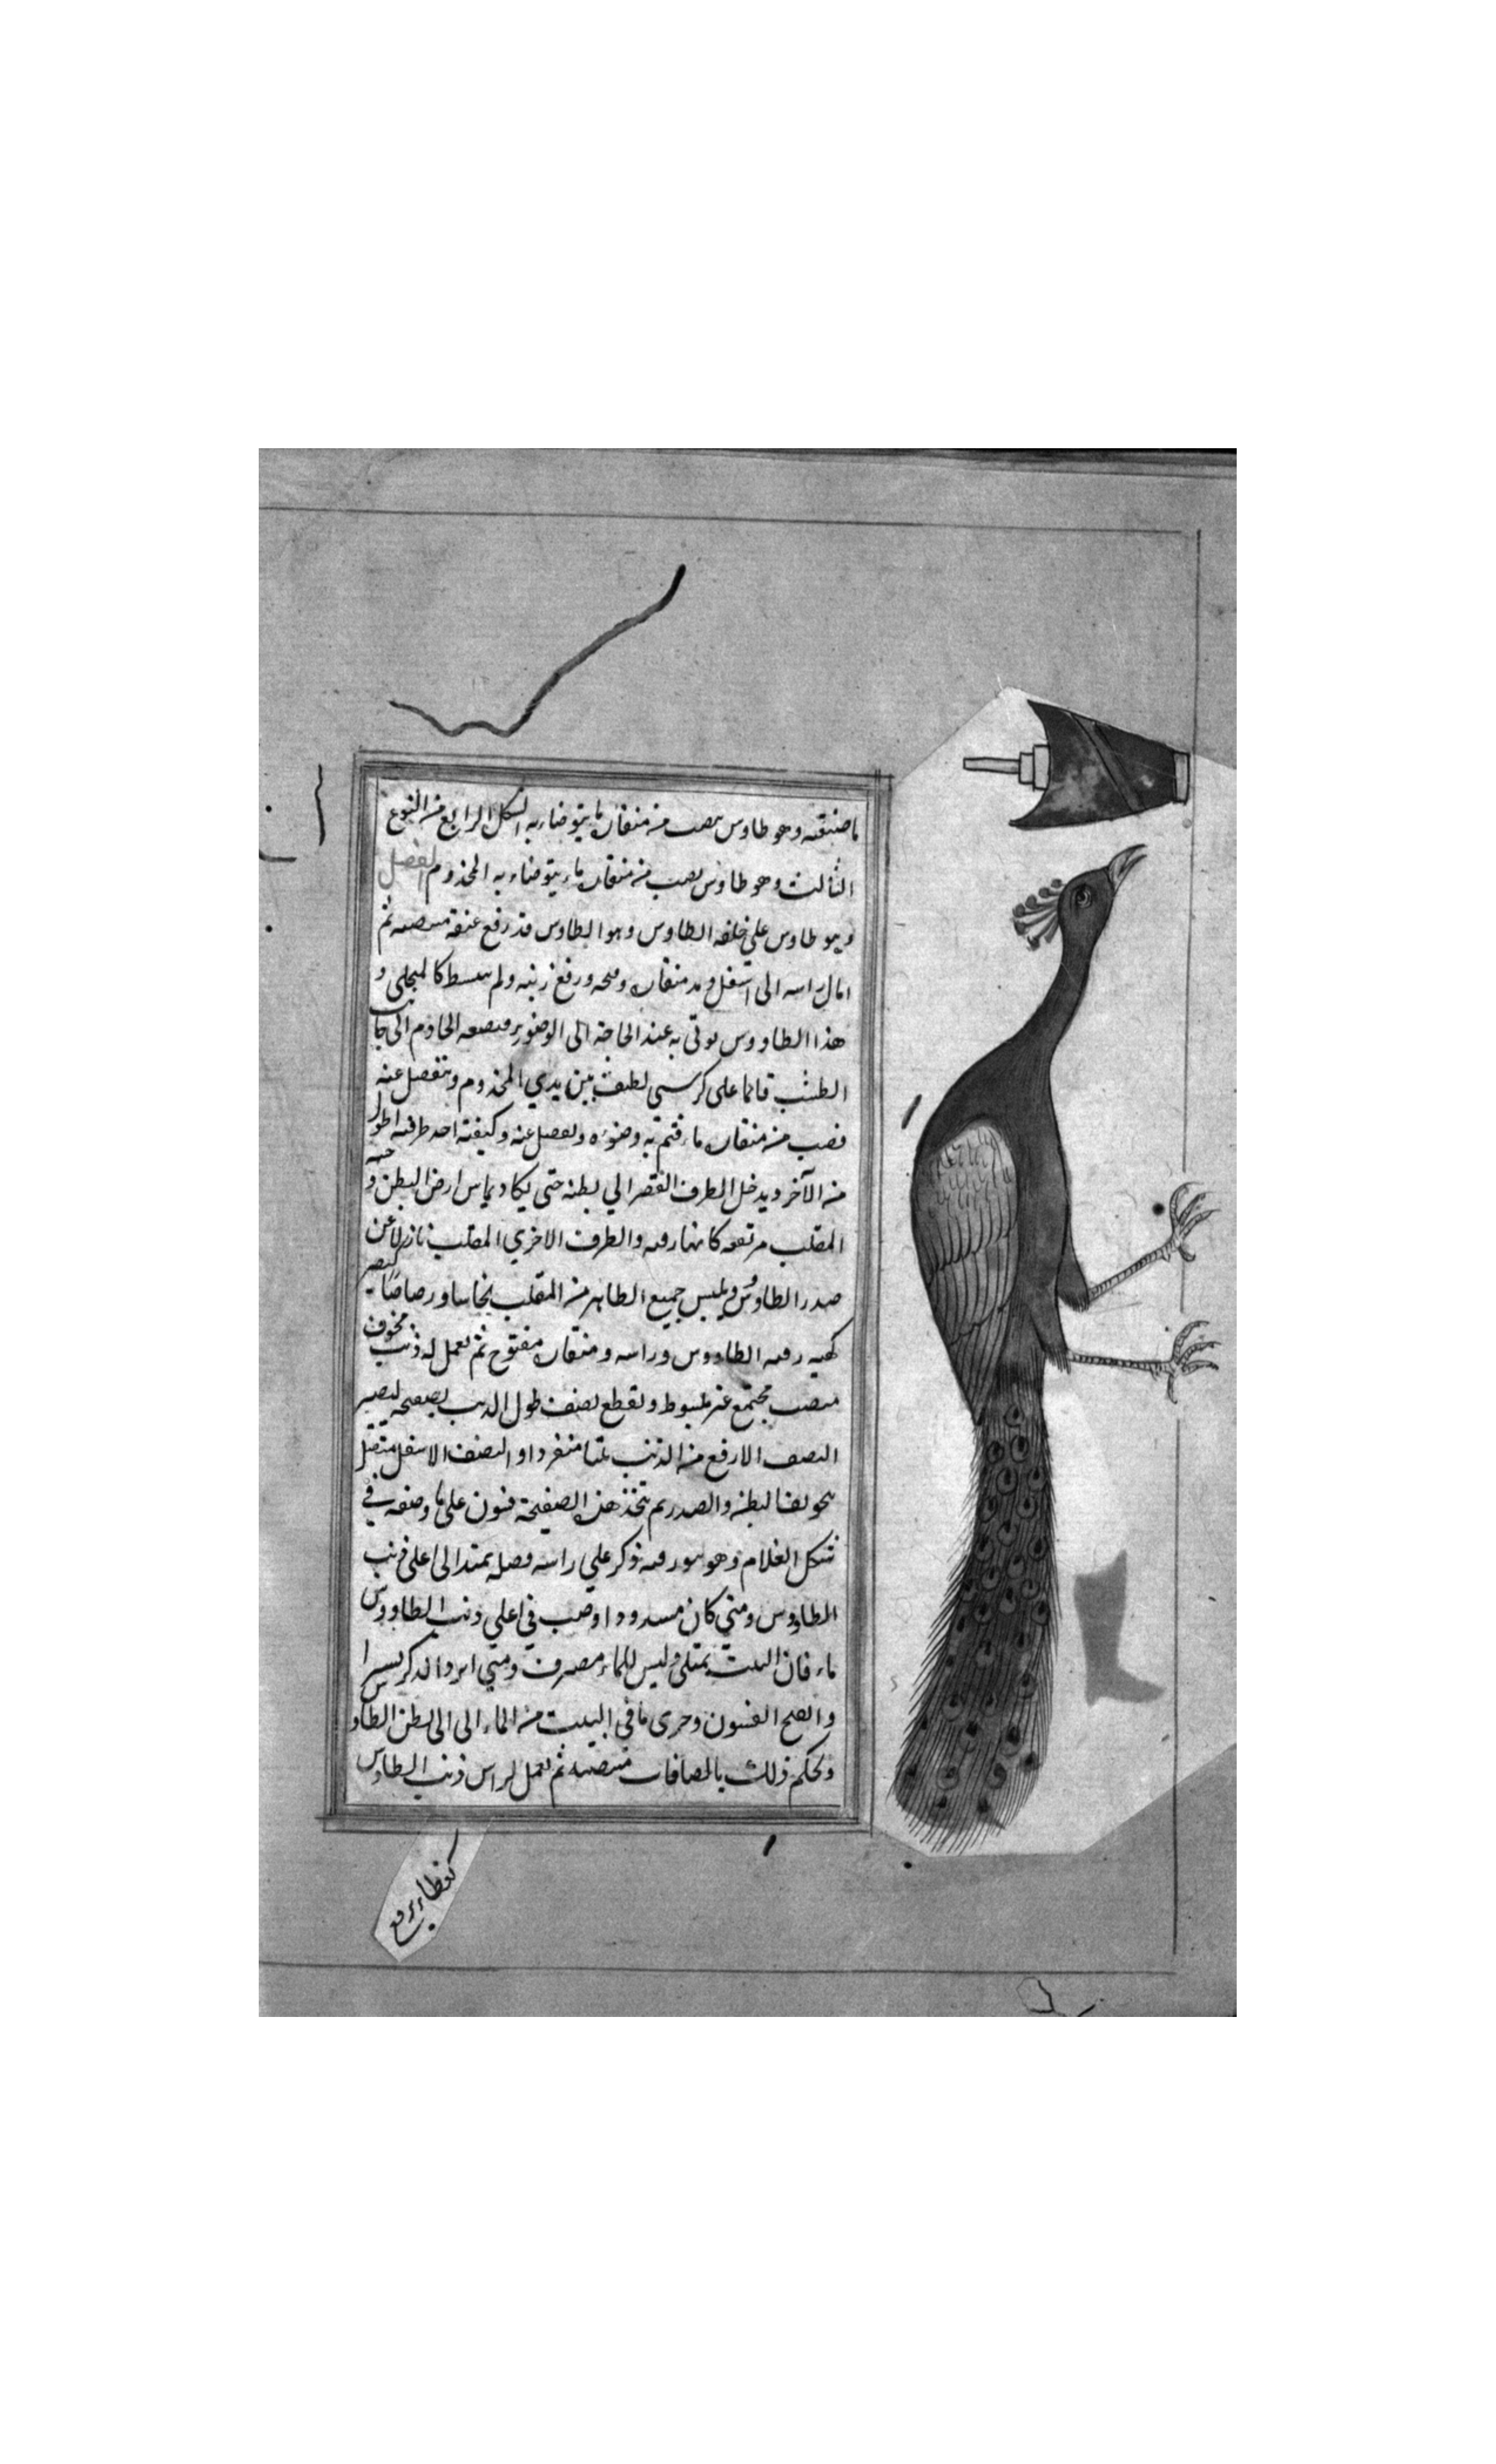 ما صنعته وهو طاوس يصب من منقاره ما يتوضاء به الشكل الرابع من النوع
الثالث وهو طاوس يصب من منقاره ماء يتوضاء به المخذوم الفصل
وهو طاوس على خلقه الطاوس وهو الطاوس قد رفع عنقه منتصبه ثم
امال راسه الى اسفل ومد منقاره وفتحه ورفع ولم كالمجلى و
هذا الطاووس يوتى به عند الحاجة الى الوضوء فيضعه الخادم الى جانب
الطشت قائما على كرسي لطيف بين يدي المخذوم وينفصل عنه
فصب من منقاره ماء فتم به وضوءه وكيفته احد طرفيه اطول
من الآخر ويدخل الطرف القصر الي بطنه حتى يكاد يماس ارض البطن و
المقلب مرتفعه كانها رقبه والطرف الاخري المقلب نازلا عن
صدر الطاوس ويلبس جميع الظاهر من المقلب نحاسا ورصاصا ليصير
كهيه رقبه الطاووس وراسه ومنقاره مفتوح ثم يعمل له ذنب مجوف
منتصب مجتمع غير مبسوط ويقطع نصف طول الذنب بصفيحه ليصير
النصف الارفع من الذنب بيتا منفردا والنصف الاسفل متصل
بتجويف البطن والصدر ثم تتخذ هذه الصفيحة فنون على ما وصفه في
شكل الغلام وهو على راسه وصله يمتد الى اعلى ذنب
الطاووس ومتي كان مسدودا وصب في اعلي ذنب الطاووس
ماء فان البيت يمتلى وليس للماء مصرف ومتي الذكر يسيرا
وانفتح وجرى ما في البيت من الماء الى الى بطن الطاوس
ويحكم ذلك منتصبه ثم يعمل لراس ذنب الطاوس